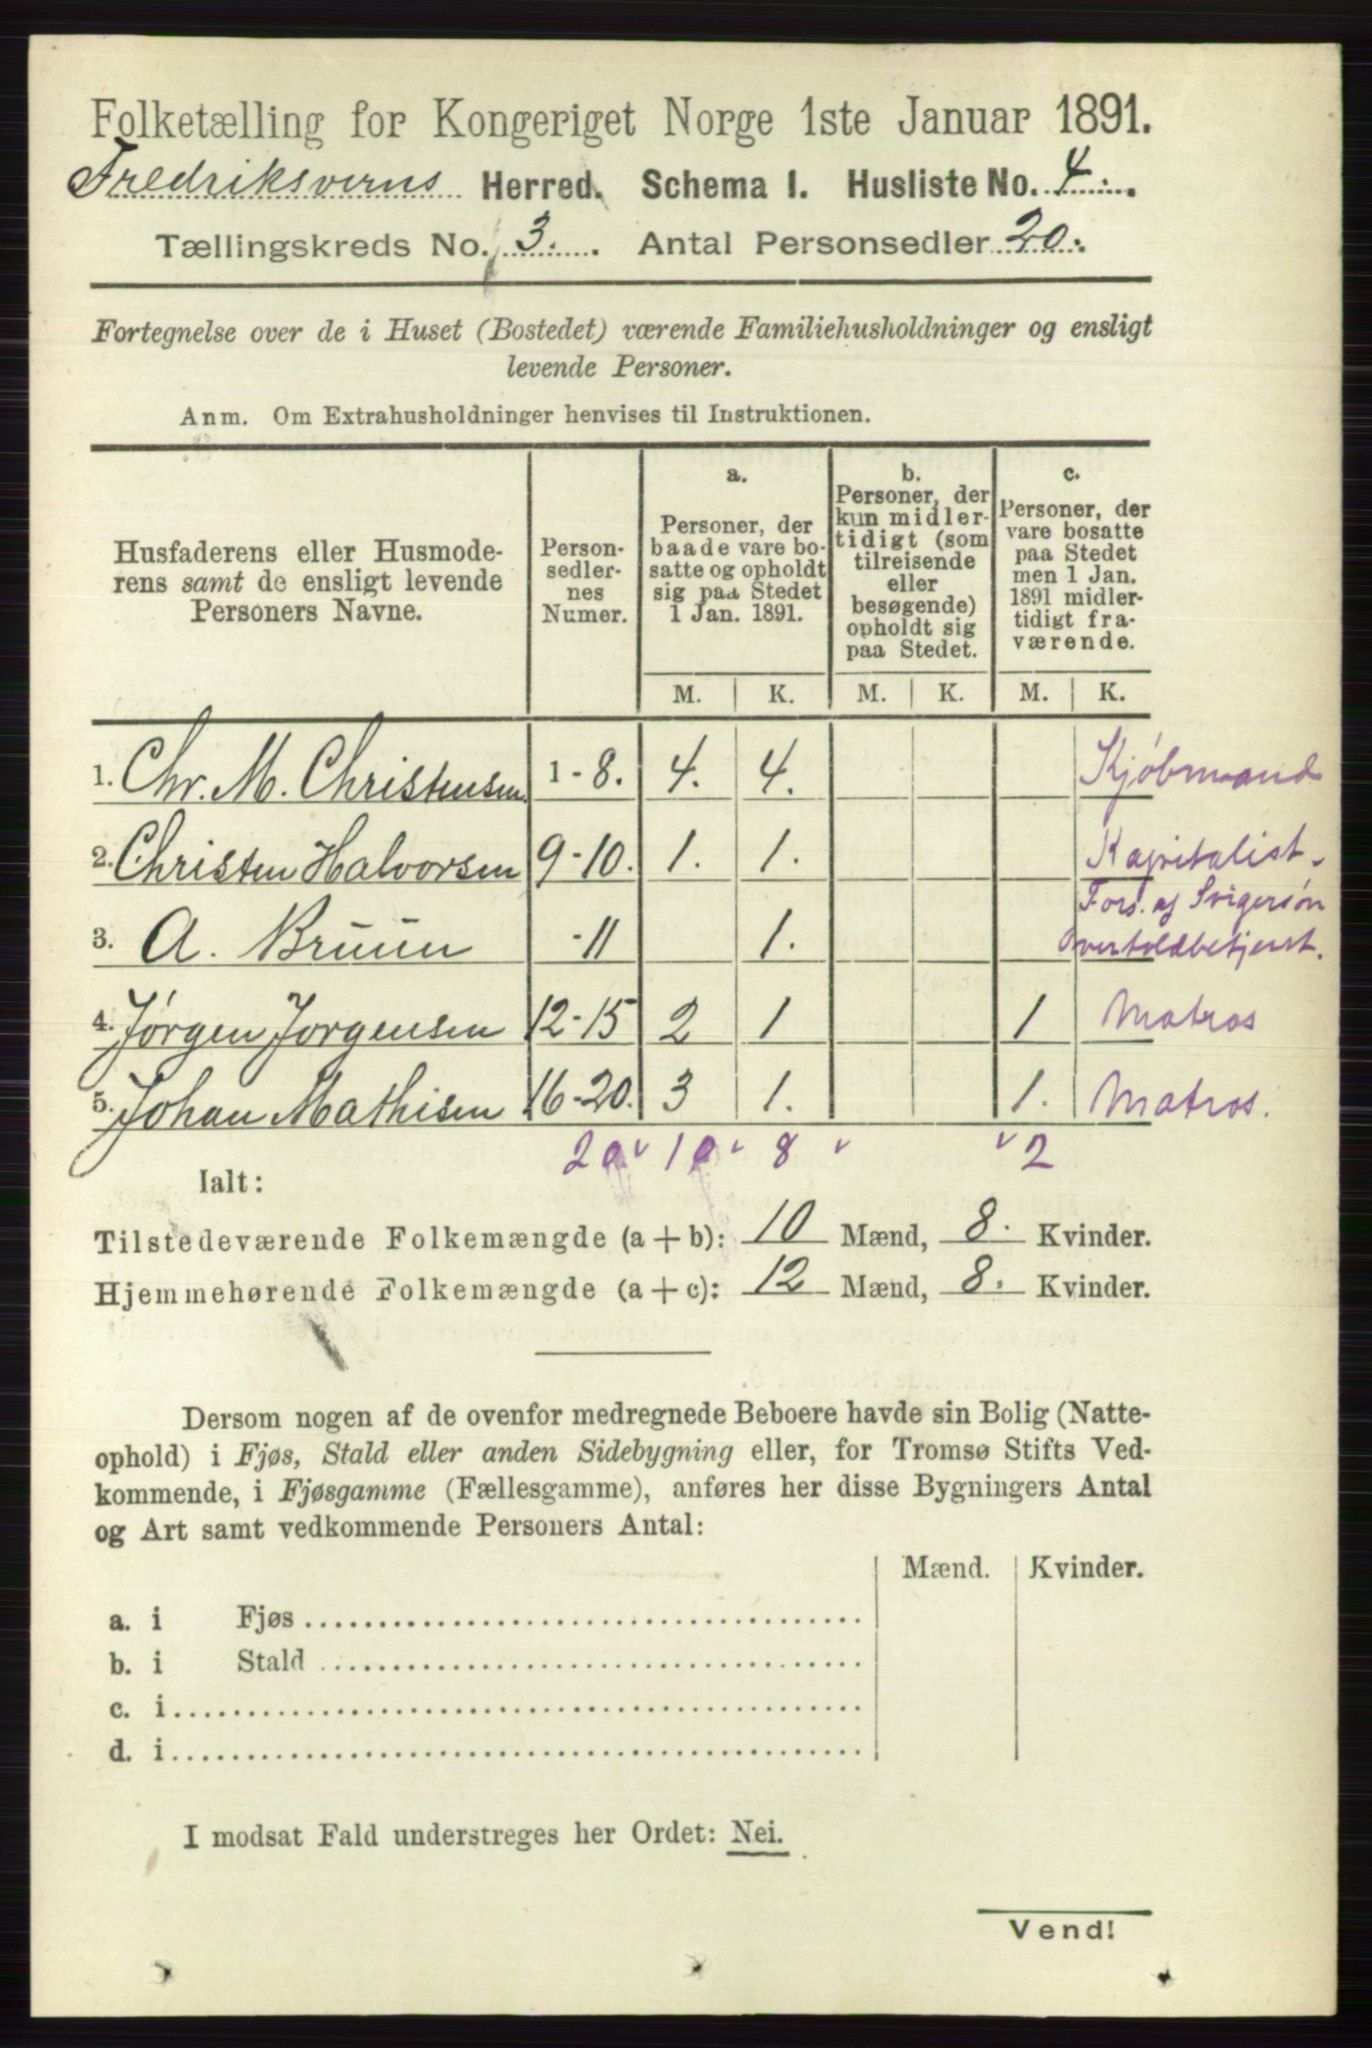 Folketælling for Kongeriget Norge 1ste Januar 1891.
Fredriksverns Herred. Schema I. Husliste No. 4.
Tællingskreds No. 3. Antal Personsedler 20.
Fortegnelse over de i Huset (Bostedet) værende Familiehusholdninger og ensligt
levende Personer.
Anm. Om Extrahusholdninger henvises til Instruktionen.
Husfaderens eller Husmode-
rens samt de ensligt levende
Personers Navne.
Person-
sedler-
nes
Numer.
a.
Personer, der
baade vare bo-
satte og opholdt
sig paa Stedet
1 Jan. 1891.
b.
Personer, der
kun midler-
tidigt (som
tilreisende
eller
besøgende)
opholdt sig
paa Stedet.
c.
Personer, der
vare bosatte
paa Stedet
men 1 Jan.
1891 midler-
tidigt fra-
værende.
M. K. M. K. M. K.
1. Chr. M. Christensen 1-8. 4. 4. Kjøbmand
2. Christen Halvorsen 9-10. 1. 1. Kapitalist.
3. A. Bruun -11 1. Fors. af Svigersøn
Overtoldbetjent.
4. Jørgen Jorgensen 12-15 2 1 1 Matros
5. Johan Mathisen 16-20. 3 1. 1. Matros.
20 10 8 2
Ialt:
Tilstedeværende Folkemængde (a + b): 10 Mænd, 8. Kvinder.
Hjemmehørende Folkemængde (a + c): 12 Mænd, 8. Kvinder.
Dersom nogen af de ovenfor medregnede Beboere havde sin Bolig (Natte-
ophold) i Fjøs, Stald eller anden Sidebygning eller, for Tromsø Stifts Ved-
kommende, i Fjøsgamme (Fællesgamme), anføres her disse Bygningers Antal
og Art samt vedkommende Personers Antal:
Mænd. Kvinder.
a. i Fjøs
b. i Stald
c. i
d. i
I modsat Fald understreges her Ordet: Nei.
Vend!